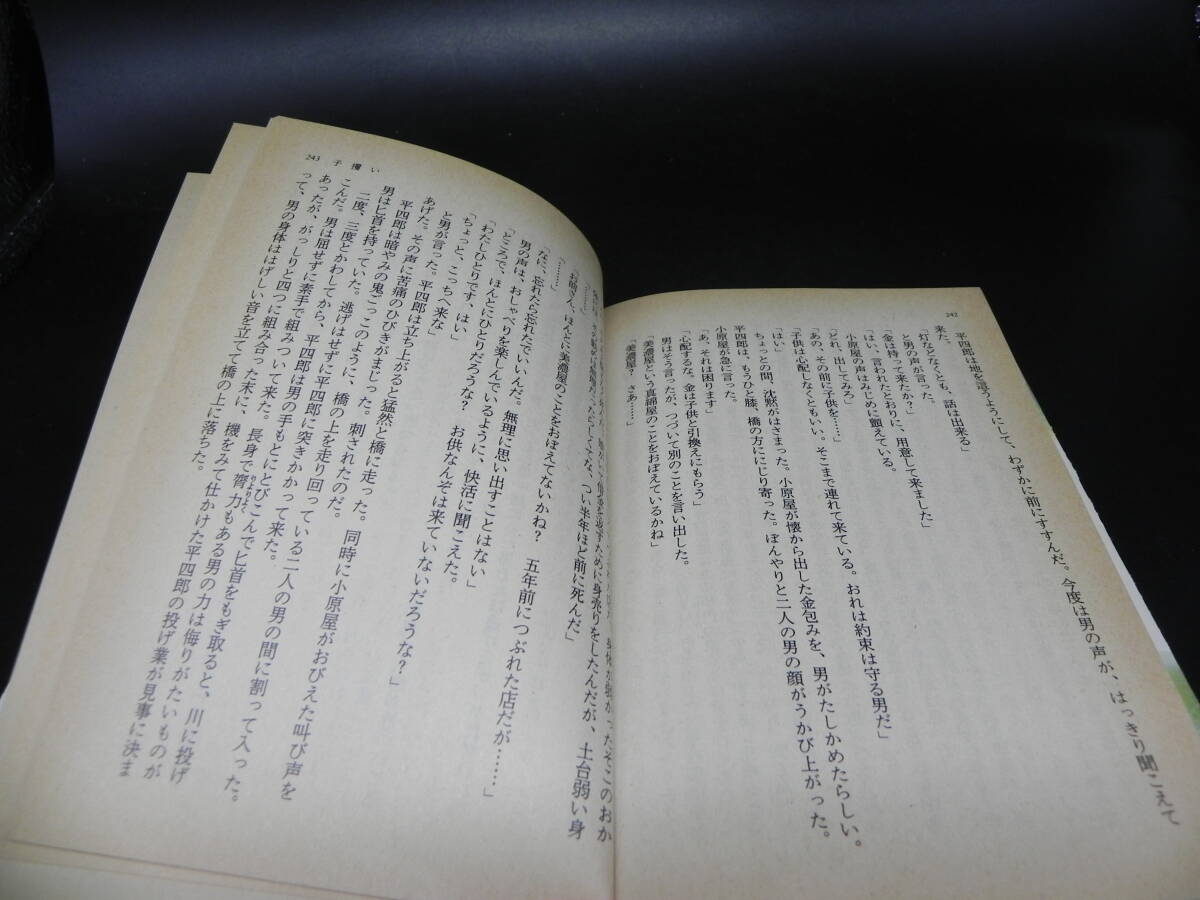 242
平四郎は地を這うようにして、わずかに前にすすんだ。今度は男の声が、はっきり聞こえて
来た。
「灯などなくとも、話は出来る」
と男の声が言った。
「金は持って来たか?」
「はい、言われたとおりに、用意して来ました」
小原屋の声はみじめに顫えている。
「どれ、出してみろ」
「あの、その前に子供を……」
「子供は心配しなくともいい。そこまで連れて来ている。おれは約束は守る男だ」
「はい」
ちょっとの間、沈黙がはさまった。小原屋が懐から出した金包みを、男がたしかめたらしい。
平四郎は、もうひと膝、橋の方ににじり寄った。ぼんやりと二人の男の顔がうかび上がった。
小原屋が急に言った。
「あ、それは困ります」
「心配するな。金は子供と引換えにもらう」
男はそう言ったが、つづいて別のことを言い出した。
「美濃屋という真綿屋のことをおぼえているかね」
「美濃屋? さあ……」
243 子攫い
「お前さん、ほんとに美濃屋のことをおぼえてないかね? 五年前につぶれた店だが……」
「………」
「なに、忘れたら忘れたでいいんだ。無理に思い出すことはない」
男の声は、おしゃべりを楽しんでいるように、快活に聞こえた。
「ところで、ほんとにひとりだろうな? お供なんぞは来ていないだろうな?」
「わたしひとりです、はい」
「ちょっと、こっちへ来な」
と男が言った。平四郎は立ち上がると猛然と橋に走った。同時に小原屋がおびえた叫び声を
あげた。その声に苦痛のひびきがまじった。刺されたのだ。
平四郎は暗やみの鬼ごっこのように、橋の上を走り回っている二人の男の間に割って入った。
男は匕首を持っていた。逃げはせずに平四郎に突きかかって来た。
二度、三度とかわしてから、平四郎は男の手もとにとびこんで匕首をもぎ取ると、川に投げ
こんだ。男は屈せずに素手で組みついて来た。長身で膂力もある男の力は侮りがたいものが
りょりょく
あったが、がっしりと四つに組み合った末に、機をみて仕かけた平四郎の投げ業が見事に決ま
って、男の身体ははげしい音を立てて橋の上に落ちた。